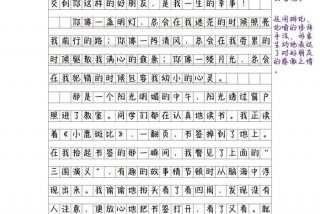 交到你这样的好朋友，是我一生的幸事！
你像一盏明灯，总会在我迷茫的时候照亮
我前行的路；你像一阵清风，总会在我劳累的
时候让我心旷神怡；你像一缕月光，总会
在我犯错的时候包容我幼小的心灵。
那是一个阳光明媚的中午，阳光透过窗户
照进了教室。同学们都在认真地读书。我正读
着《小鹿斑比》，一翻页，书签掉到了地上。
在我拾起书签的那一瞬间，我瞥见了上面的“
三国演义”，有趣的故事情节顿时从脑海中浮
现出来。我抬头看了看四周，发现没有
人注意，便放心地把书签打开，看了又看，
运用排比、
比喻的修辞
手法，形象
生动地表达
了对好朋友
的感激之情。